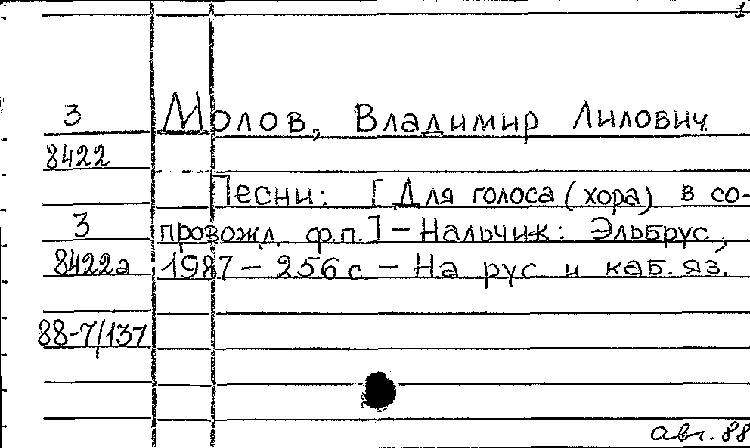 1
3 Молов, Владимир Лилович
8422
Песни: [Для голоса (хора) в со-
3 провожд. ф.п.] - Нальчик: Эльбрус,
8422а 1987 - 256 с - На рус и каб. яз.
88-7/137
авг. 88